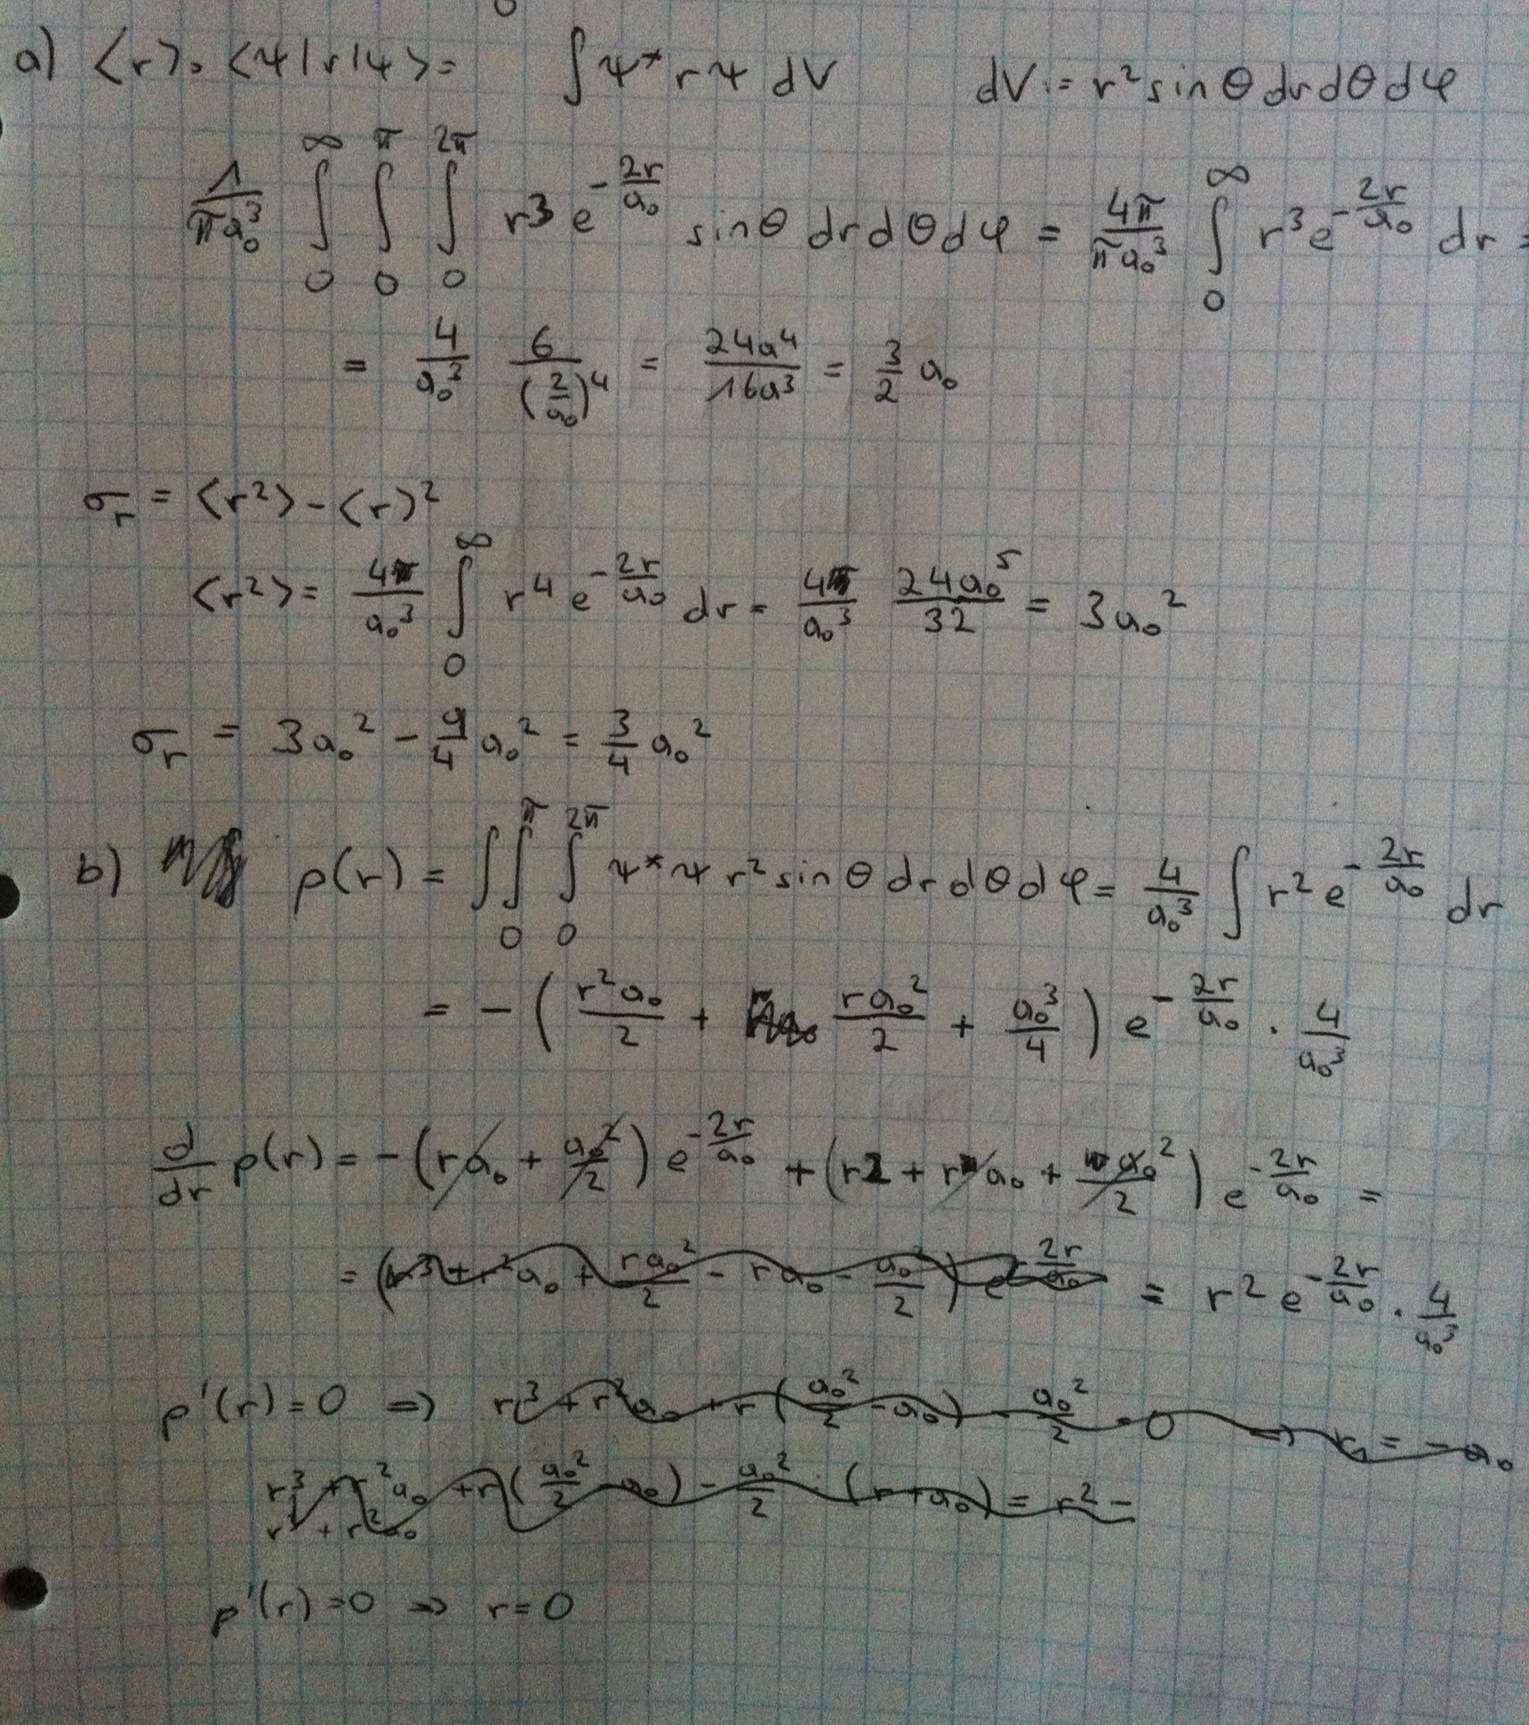 a) ⟨r⟩ = ⟨ψ|r|ψ⟩ = ∫ ψ* r ψ dV   dV := r² sin θ dr dθ dφ
1/(πa₀³) ∫₀^∞ ∫₀^π ∫₀^2π r³ e^(-2r/a₀) sin θ dr dθ dφ = 4π/(πa₀³) ∫₀^∞ r³ e^(-2r/a₀) dr =
= 4/a₀³ 6/(2/a₀)⁴ = 24a⁴/16a³ = 3/2 a₀
σᵣ = ⟨r²⟩ - ⟨r⟩²
⟨r²⟩ = 4/a₀³ ∫₀^∞ r⁴ e^(-2r/a₀) dr = 4/a₀³ 24a₀⁵/32 = 3a₀²
σᵣ = 3a₀² - 9/4 a₀² = 3/4 a₀²
b) p(r) = ∫ ∫₀^π ∫₀^2π ψ*ψ r² sin θ dr dθ dφ = 4/a₀³ ∫ r² e^(-2r/a₀) dr
= - ( r²a₀/2 + ra₀²/2 + a₀³/4 ) e^(-2r/a₀) · 4/a₀³
d/dr p(r) = - ( ra₀ + a₀²/2 ) e^(-2r/a₀) + ( r2 + ra₀ + a₀²/2 ) e^(-2r/a₀) =
= ( r³ + r²a₀ + ra₀²/2 - ra₀ - a₀²/2 ) e^(-2r/a₀) = r² e^(-2r/a₀) · 4/a₀³
p'(r) = 0 ⇒ r³ + r²a₀ + r ( a₀²/2 - a₀ ) - a₀²/2 = 0 ⇒ r₁ = - a₀
r³ + r²a₀ + r ( a₀²/2 - a₀ ) - a₀²/2 : ( r + a₀ ) = r² -
r³ + r²a₀
p'(r) = 0 ⇒ r = 0